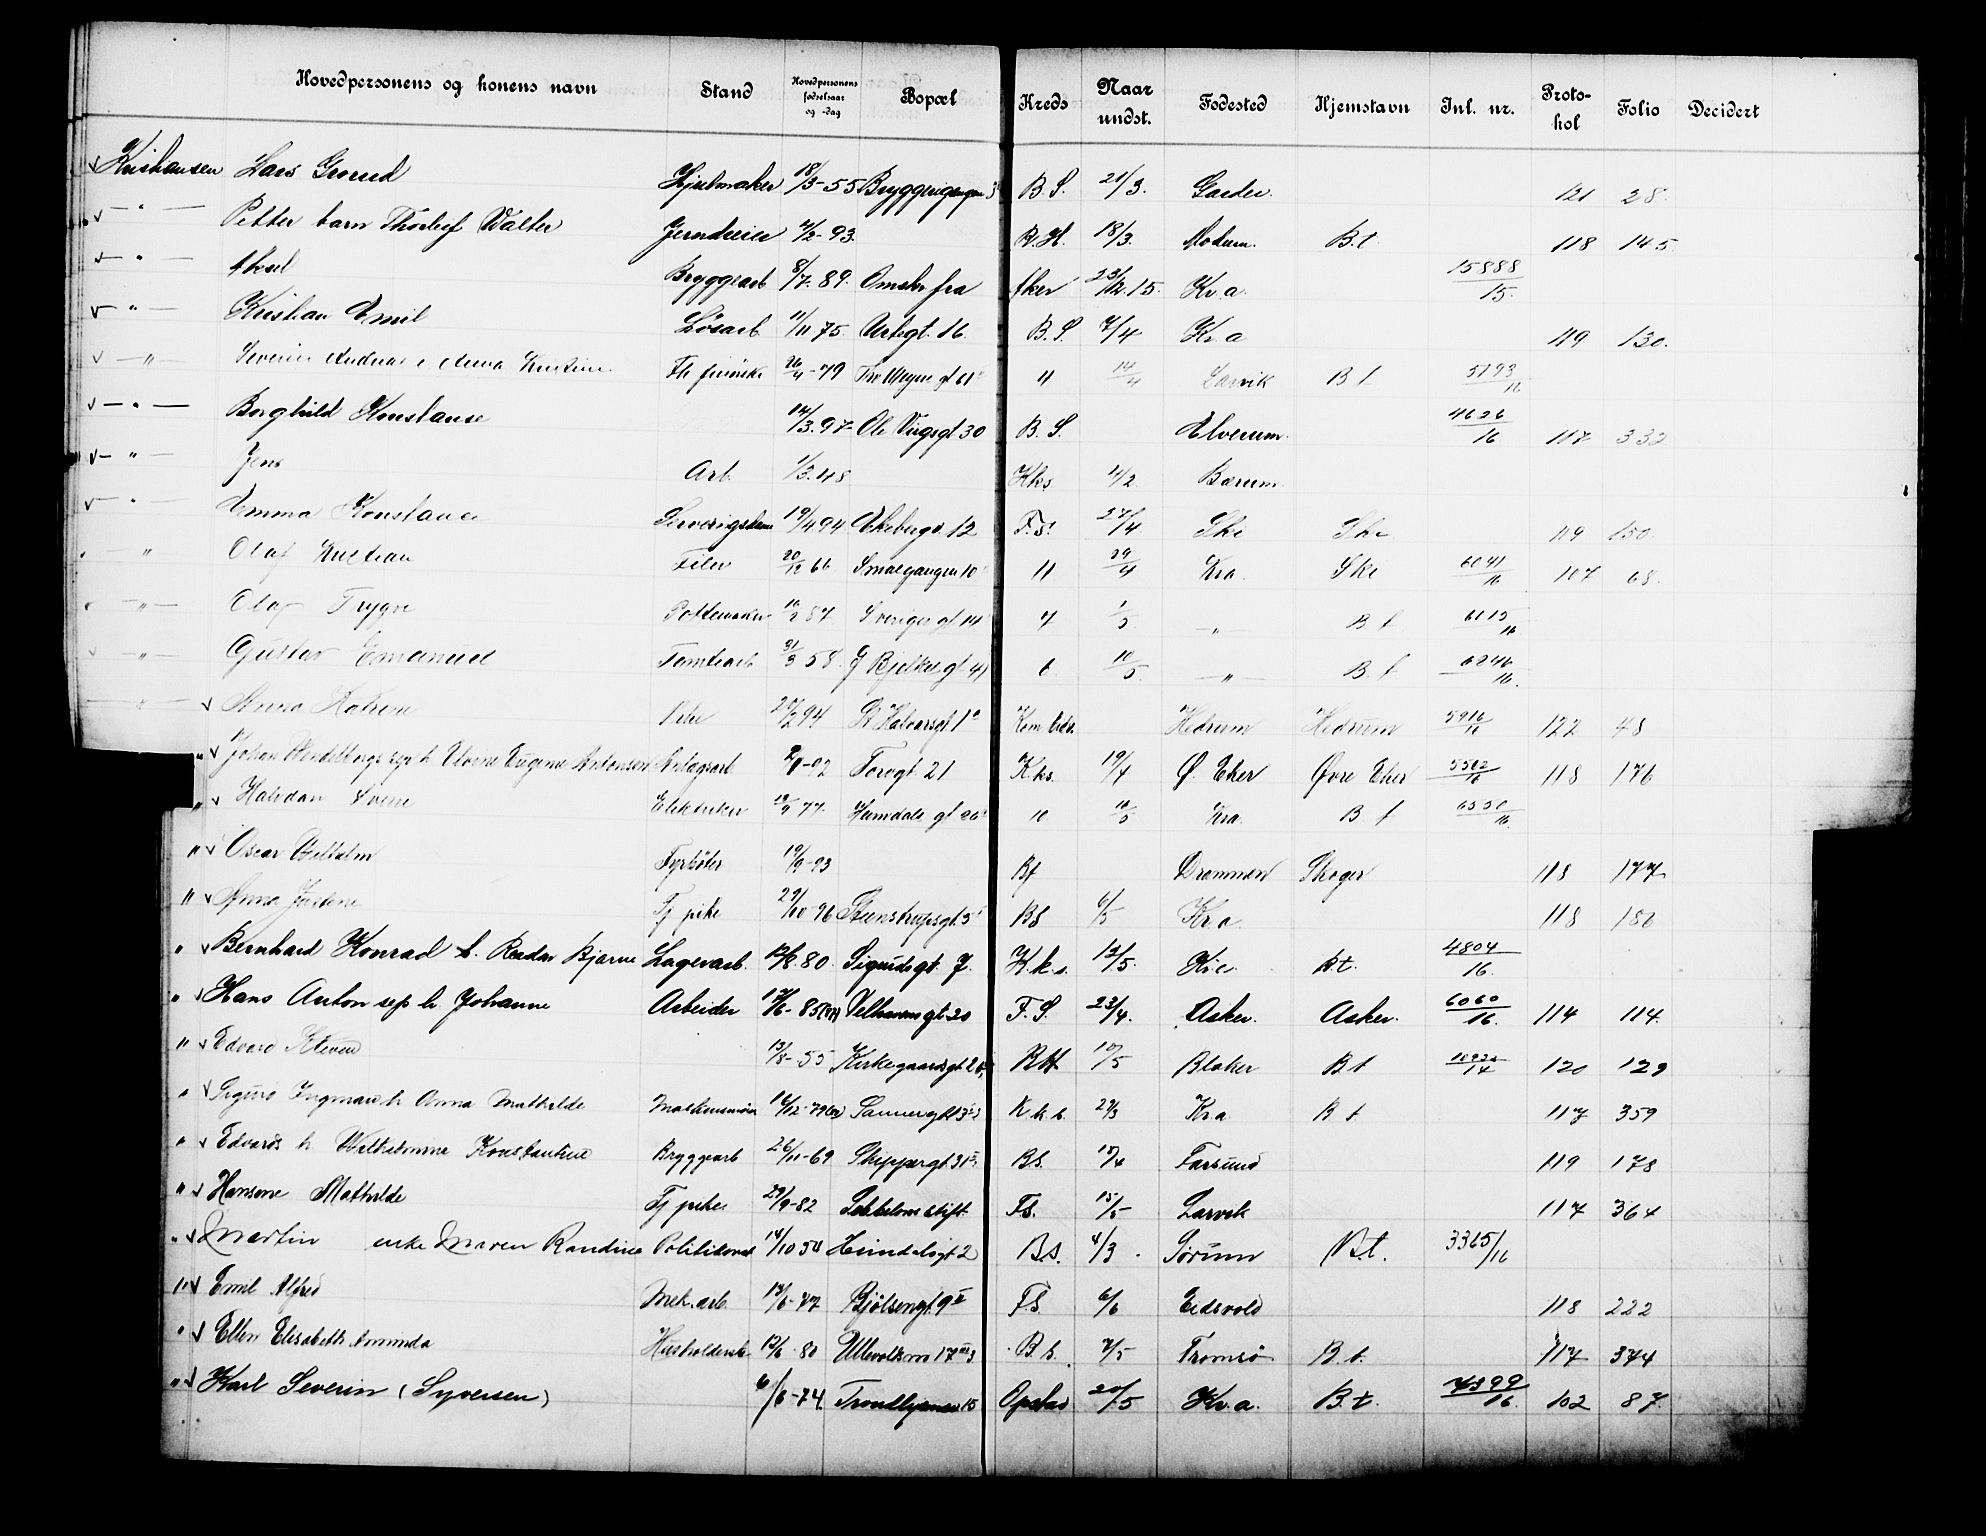 Hovedpersonens og konens navn Stand Hovedpersonens fødselsaar og -dag Bopæl Kreds Naar undst. Fødested Hjemstavn Inl. nr. Proto-kol Folio Decidert
Kristiansen Lars Grorud Hjulmaker 18/3-55 Bryggerigangen B.S. 21/3. 121 28.
— " — Petter barn Thorleif Walter Jerndreier 4/2-93. R.H. 18/3. Modum. B.t. 118 145
— " — Aksel Bryggearb 8/7.89. Omsbr fra Aker 23/12.15. Kr.a. 15888/15.
— " — Kristian Emil Løsarb 11/11 75. Urtegt. 16 B.S. 7/4 Kr a 119 130.
— " — Severin Andreas Anna Kristine 26/4-79 " 14/4 Larvik B t 5193/16
— " — Borghild Konstanse 14/3.97 Ole Vigsgt 30 B.S. Elverum. 4626/16 117 332
— " — Jens Arb. 1/3.48 Kks 4/2 Bærum
— " — Emma Konstance 19/4 94 Ekebergv. 12 F.S. 27/4 Ski Ski 119 150.
— " — Olaf Kristian Filer 20/12 66 Smalgangen 10 11 29/4 Kra. Ski 6041/16 107 68.
— " — Olaf Trygve Pottemaker 10/2 87. Sverigesgt 14 7 1/5 — " — B t 6115/16
— " — Gustav Emanuel Tomtearb 31/3 58. J Bjelkes gt 41 6 10/5. — " — B.t 6246/16.
— " — Anna Katrine 20/2 94 St Halvardsgt 1 Hedrum Hedrum 5916/16 122 48
" Johan Wendelborgs sep h Elvine Eugenie Antonsen Anlægsarb Torvgt. 21 K.ks. 19/4 Ø. Eker Øvre Eker 5502/16 118 176
" Halvdan Svene Elektriker 10/9 77. Heimdals gt 26 10 10/5 Kra. B t 6530/16.
" Oscar Vilhelm Fyrbøter 19/9-93 Bf Drammen Skoger 118 177
" Anna Justine Tj pike 29/10-96 Steenstrupsgt 5 BS 6/5 Kr.a. 118 186
" Bernhard Konrad b. Reidar Bjarne Lagerarb. 12/8.80. Sigurdsgt. 7. K.k.s. 12/5. B.t. 4804/16.
" Hans Anton sep h. Johanne Arbeider Velhavens gt. 20 F.S. 23/4. Asker. Asker. 6060/16. 114 114.
" Edvard Steven 13/8-55 Kirkegaardsgt 2 RH 10/5 Blaker B t 120 129
" Sigurd Ingmar h Anna Mathilde Sannergt K.k.s. 27/3 Kra B t 117 359
" Edvards h Wilhelmine Konstantine Bryggearb 26/11-69 Skippergt. 31 BS. 10/4 Farsund 119 178
" Hansine Mathilde Tj pike 29/9-82 FS. 15/5 Larvik 117 364
" Martin enke Maren Randine Politikonst 14/10 54 Heimdalsgt 2 B.s. 4/3. Sørum B.t. 3365/16
" Emil Alfred Mek.arb. 13/6-77 Bjølsengt. 9 II F.S. 6/6 Eidsvold 118 222
" Ellen Elisabeth Amunda Husholderske 12/6.80 Ullevoldsvn 17 B.s. 7/5 Tromsø B.t. 117 374
" Karl Severin (Syversen) 6/6-74 Trondhjemsv 15 Opslo 20/5 Kr.a. B.t. 7899/16. 102 87